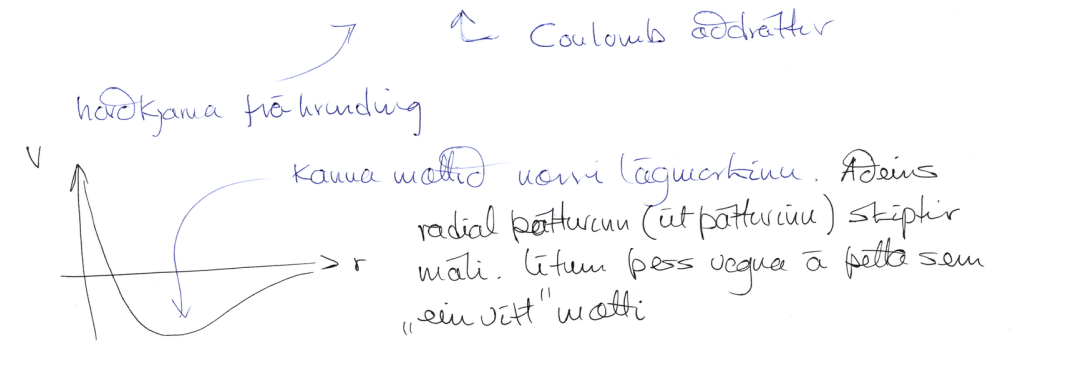 Coulomb aðdráttur
harðkjarna fráhrinding
V
kanna mættið nærri lágmarkinu. Aðeins
radial þátturinn (útþátturinn) skiptir
máli. Lítum þess vegna á þetta sem
r
„einvítt" mætti